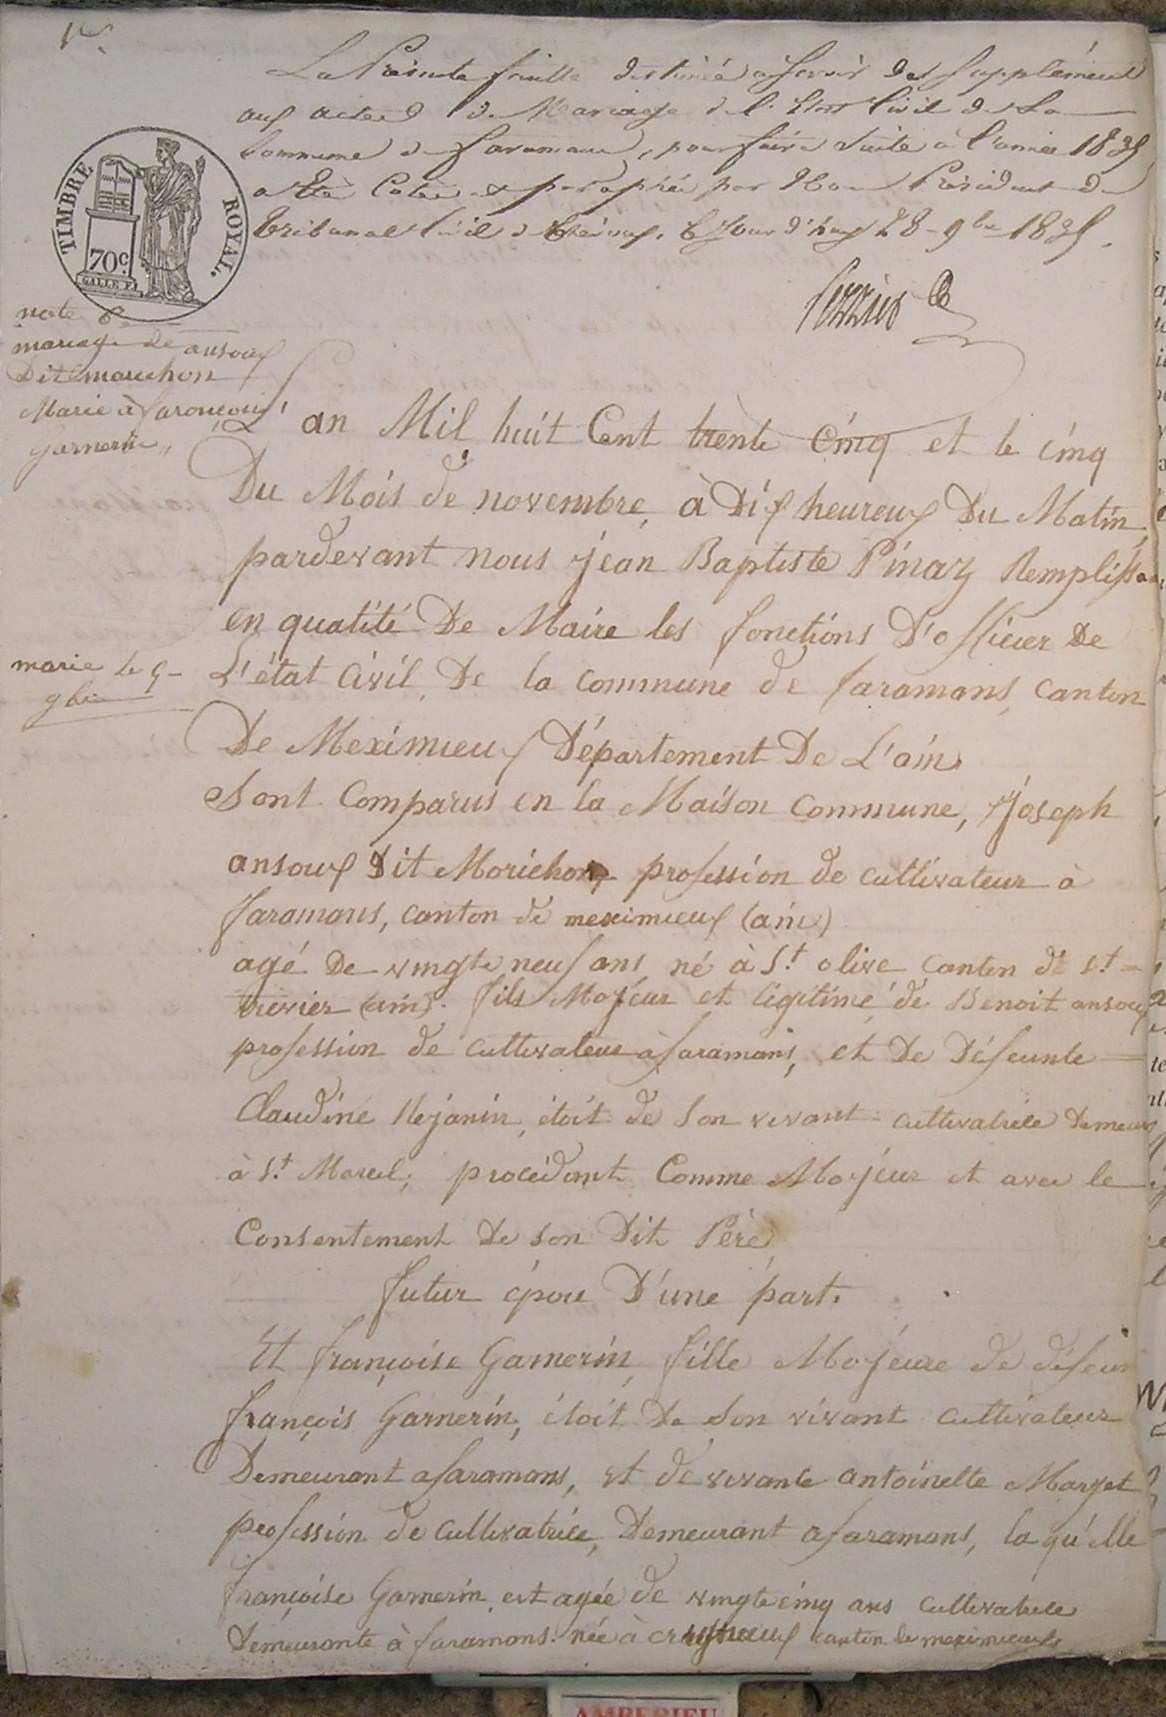 La Présente feuille destinée a servir de Supplément
aux actes de Mariage de l'Etat Civil de la
Commune de faramans, pour faire Suite a l'année 1835
a Eté Cotée et paraphée par Nous Président du
tribunal Civil de trévoux. Ce Jour d'huy 28 9bre 1835.
TIMBRE ROYAL.
70c.
note de
mariage de ansoux
Dit marichon
Marié à francoise
garnerin
L'an Mil huit Cent trente Cinq et le cinq
Du Mois de novembre, à Dix heureux Du Matin,
pardevant nous jean Baptiste Pinaz Remplissant
en qualité De Maire les fonctions D'officier De
marié le 5
9bre
L'état Civil, De la commune de faramans, canton
De Meximieux Département De L'ain.
Sont Comparus en la Maison Commune, Joseph
ansoux Dit Morichon profession de cultivateur à
faramans, canton de meximieux (ain)
agé De vingte neuf ans né à St. olive canton de St.
trivier (ain). fils Majeur et légitime de Benoit ansoux
profession de cultivateur à faramans, et De Défeunte
Claudine Rejanin, étoit de Son vivant cultivatrice Demeurant
à St. Marcel, procédant Comme Majeur et avec le
Consentement De son Dit Père
futur épou D'une part.
Et françoise Garnerin, fille Majeure de défeunt
françois Garnerin, étoit De Son vivant cultivateur
Demeurant a faramans, et de vivante antoinette Marget
profession de cultivatrice, Demeurant a faramans, la qu'elle
françoise Garnerin est agée de vingte cinq ans cultivatrice
Demeurante à faramans. née à canton de meximieux
AMBERIEU